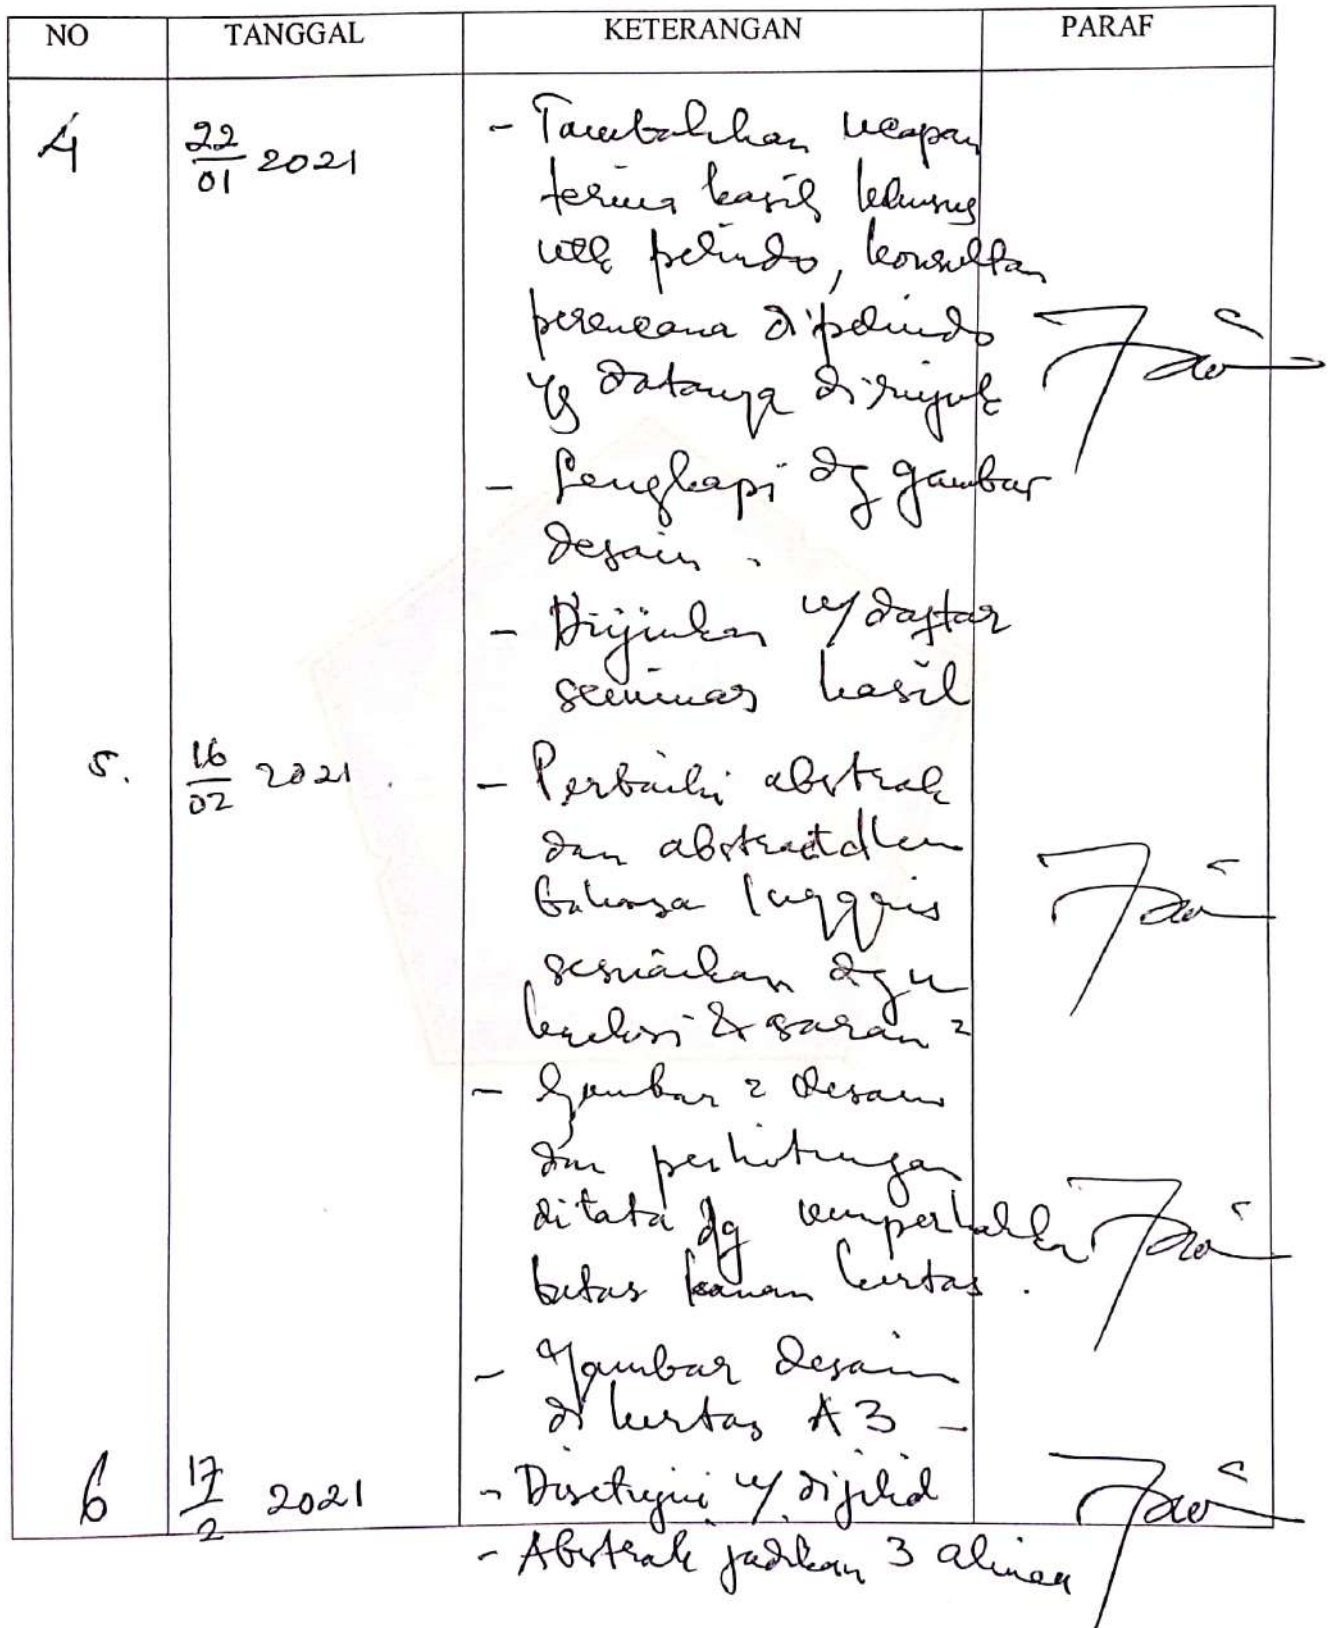 NO TANGGAL KETERANGAN PARAF
4 22/01 2021 - Tambahkan ucapan
terima kasih khusus
utk pelindo, konsultan
perencana di pelindo
yg datanya dirujuk
- Lengkapi dg gambar
desain.
- Diijinkan u/ daftar
seminar hasil
5. 16/02 2021. - Perbaiki abstrak
dan abstract dlm
bahasa Inggris
sesuaikan dgn
& saran2
- Gambar2 desain
dan perhitungan
ditata dg memperhatikan
batas kanan kertas.
- Gambar desain
di kertas A3 -
6 17/2 2021 - Disetujui u/ dijilid
- Abstrak jadikan 3 alinea